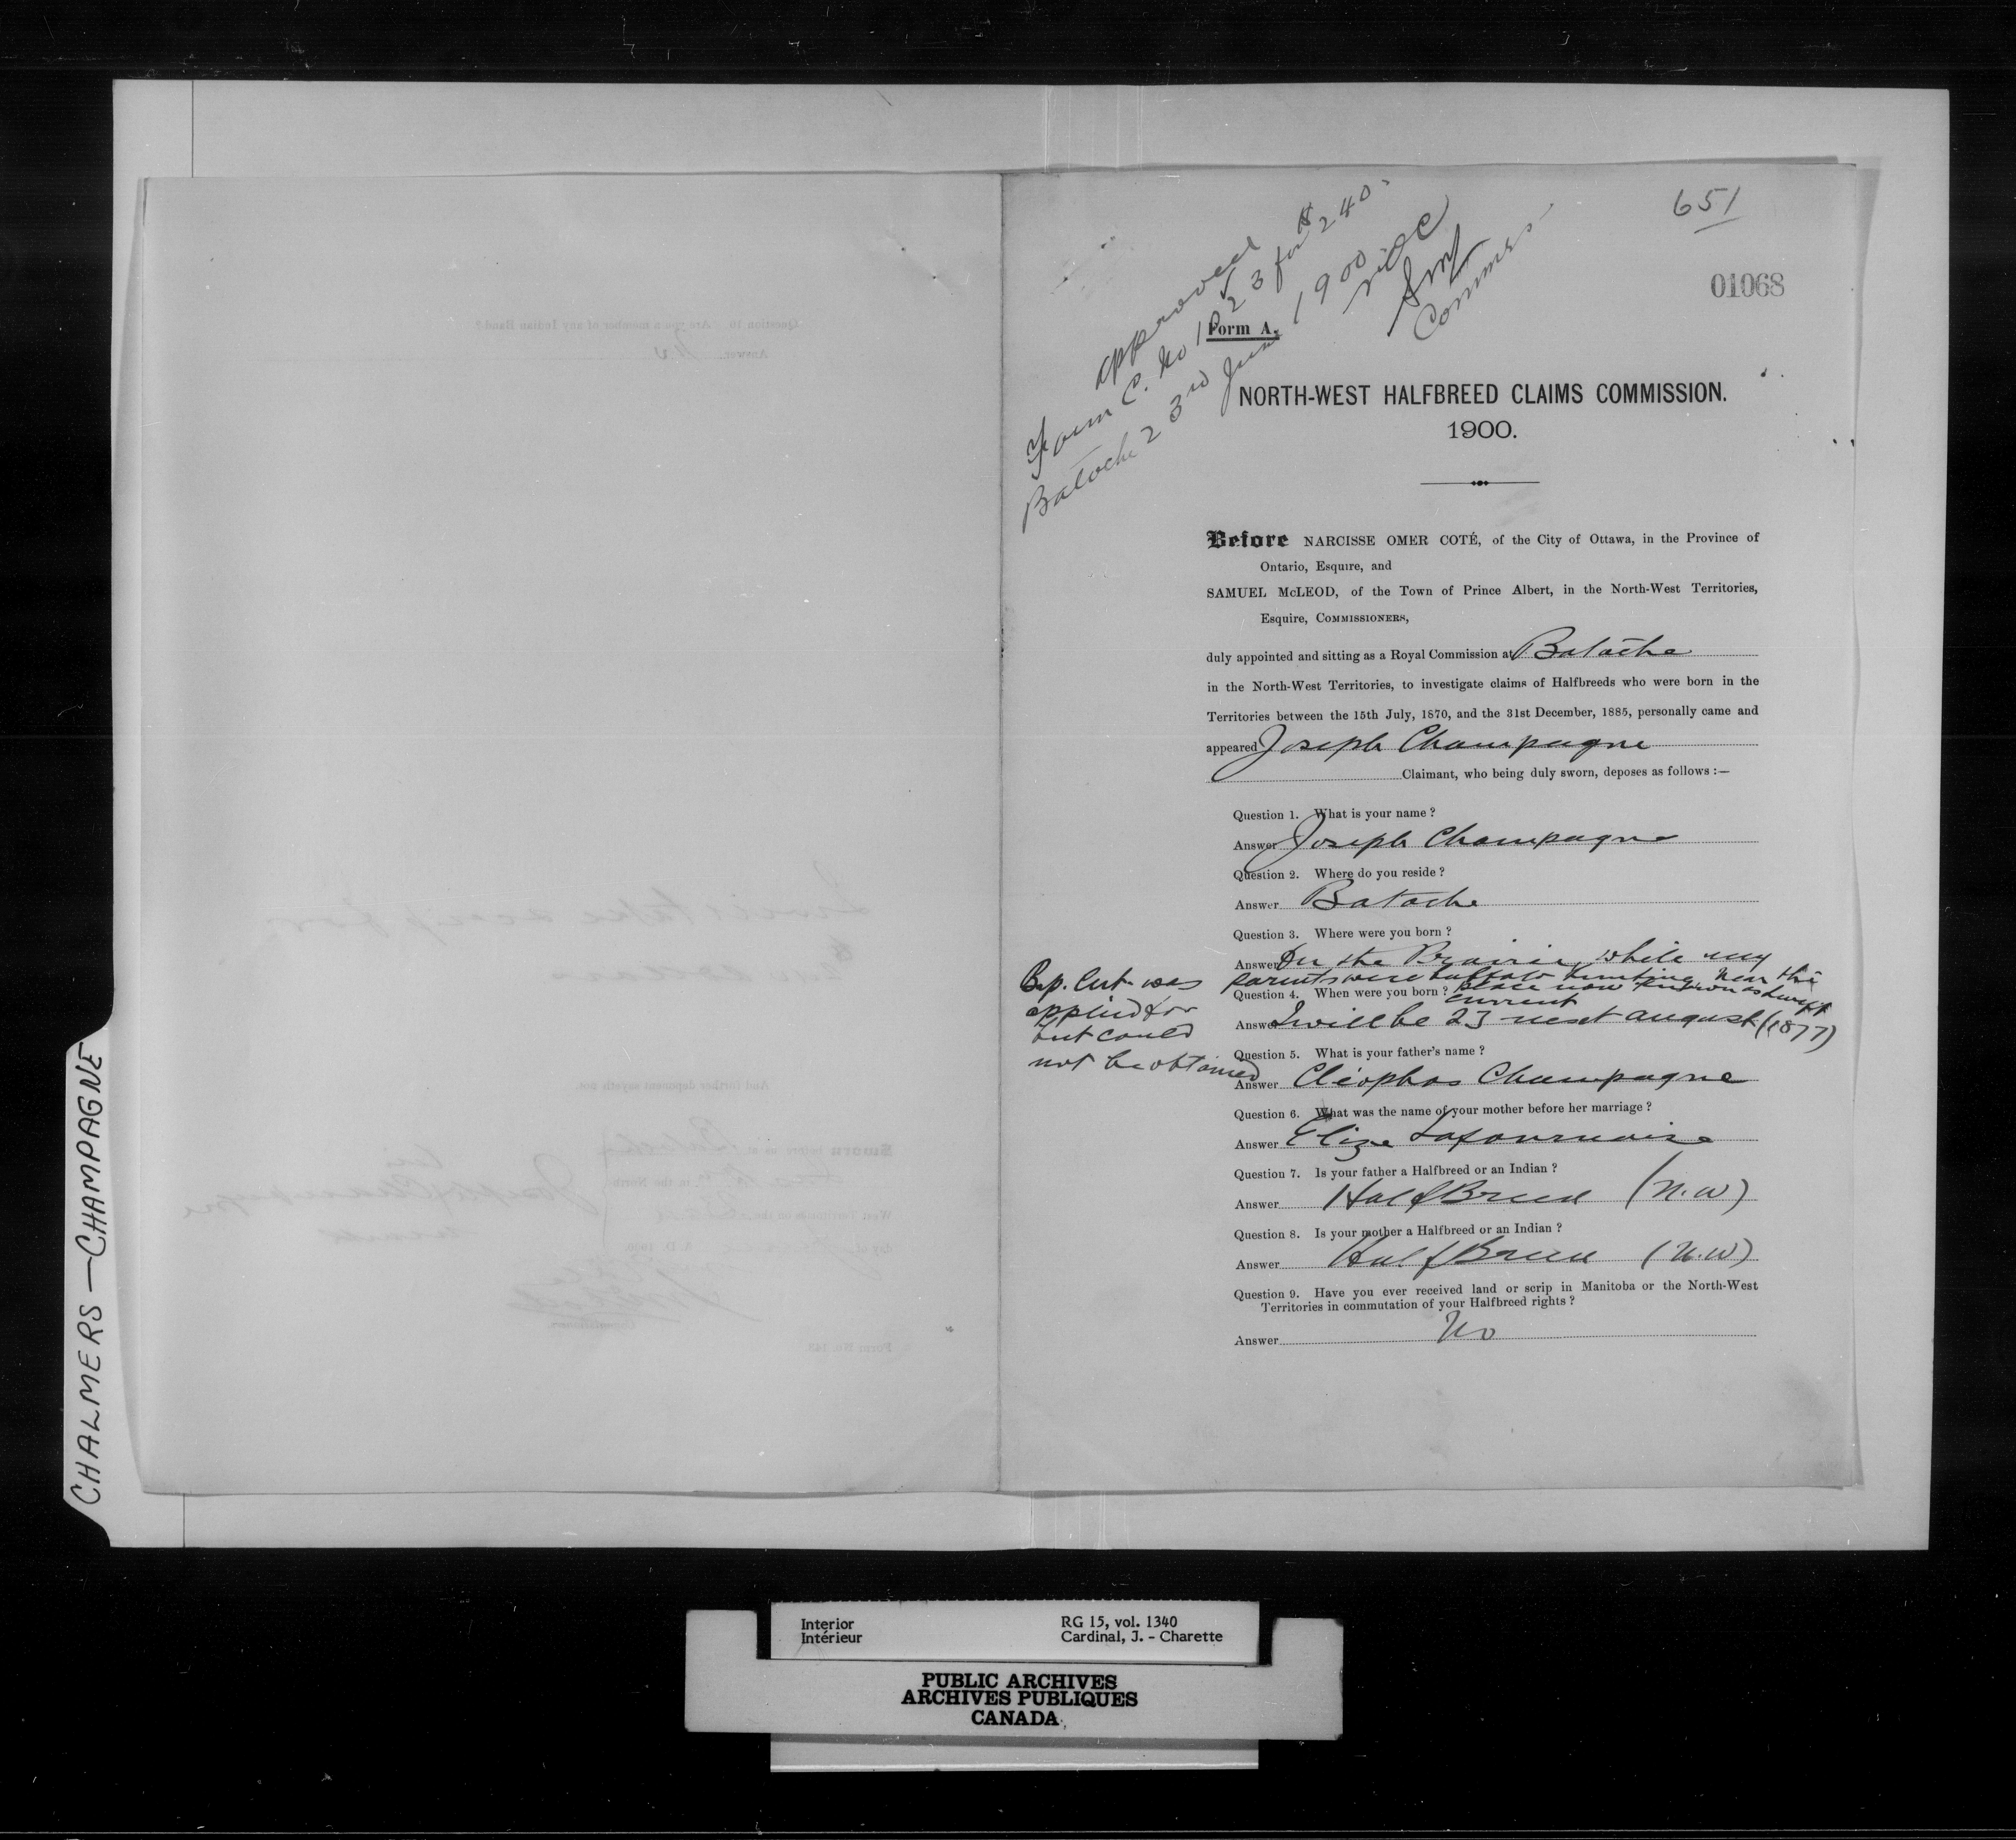 651
01068
approved
Form C. No 1023 for $240.
Batoche 23rd June 1900
NOC
SMcL
Commrs
Form A.
NORTH-WEST HALFBREED CLAIMS COMMISSION.
1900.
Before NARCISSE OMER COTÉ, of the City of Ottawa, in the Province of
Ontario, Esquire, and
SAMUEL McLEOD, of the Town of Prince Albert, in the North-West Territories,
Esquire, COMMISSIONERS,
duly appointed and sitting as a Royal Commission at Batoche
in the North-West Territories, to investigate claims of Halfbreeds who were born in the
Territories between the 15th July, 1870, and the 31st December, 1885, personally came and
appeared Joseph Champagne
Claimant, who being duly sworn, deposes as follows :—
Question 1. What is your name ?
Answer Joseph Champagne
Question 2. Where do you reside ?
Answer Batoche
Question 3. Where were you born ?
Answer On the Prairie, while my
parents were buffalo hunting near the
place now known as Swift
Current
Question 4. When were you born ?
Answer I will be 23 next august (1877)
Bap. Cert. was
applied for
but could
not be obtained
Question 5. What is your father's name ?
Answer Cléophas Champagne
Question 6. What was the name of your mother before her marriage ?
Answer Elize Lafournaise
Question 7. Is your father a Halfbreed or an Indian ?
Answer HalfBreed (N.W)
Question 8. Is your mother a Halfbreed or an Indian ?
Answer HalfBreed (N.W)
Question 9. Have you ever received land or scrip in Manitoba or the North-West
Territories in commutation of your Halfbreed rights ?
Answer No
Question 10. Are you a member of any Indian Band ?
Answer No
And further deponent sayeth not.
Form No. 143
CHALMERS — CHAMPAGNE
Interior
Intérieur
RG 15, vol. 1340
Cardinal, J. - Charette
PUBLIC ARCHIVES
ARCHIVES PUBLIQUES
CANADA